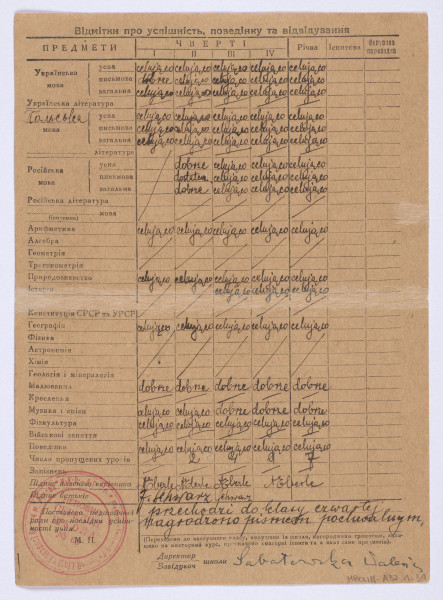 Відмітки про успішність, поведінку та відвідування
ПРЕДМЕТИ ЧВЕРТІ Річна Іспитова
I II III IV
Українська мова усна celująco celująco celująco celująco celująco
письмова dobrze celująco celująco celująco celująco
загальна celująco celująco celująco celująco celująco
Українська література
Польська мова усна celująco celująco celująco celująco celująco
письмова celująco celująco celująco celująco celująco
загальна celująco celująco celująco celująco celująco
література
Російська мова усна dobrze celująco celująco celująco
письмова celująco celująco celująco
загальна dobrze celująco celująco celująco
Російська література
мова
Арифметика celująco celująco celująco celująco celująco
Алгебра
Геометрія
Тригонометрія
Природознавство celująco celująco celująco celująco celująco
Історія celująco celująco celująco
Конституція СРСР та УРСР
Географія celująco celująco celująco celująco celująco
Фізика
Астрономія
Хімія
Геологія і мінералогія
Малювання dobrze dobrze dobrze dobrze dobrze
Креслення
Музика і співи celująco celująco dobrze dobrze dobrze
Фізкультура celująco celująco celująco celująco celująco
Військові заняття
Поведінка celująco celująco celująco celująco celująco
Число пропущених уроків
Запізнень
Підпис
Підпис батьків
Постанова педагогічної ради про наслідки успішності учня
przechodzi do klasy czwartej
nagrodzono pismem pochwalnym,
М. П.
Директор
Завідувач школи Sabatowska